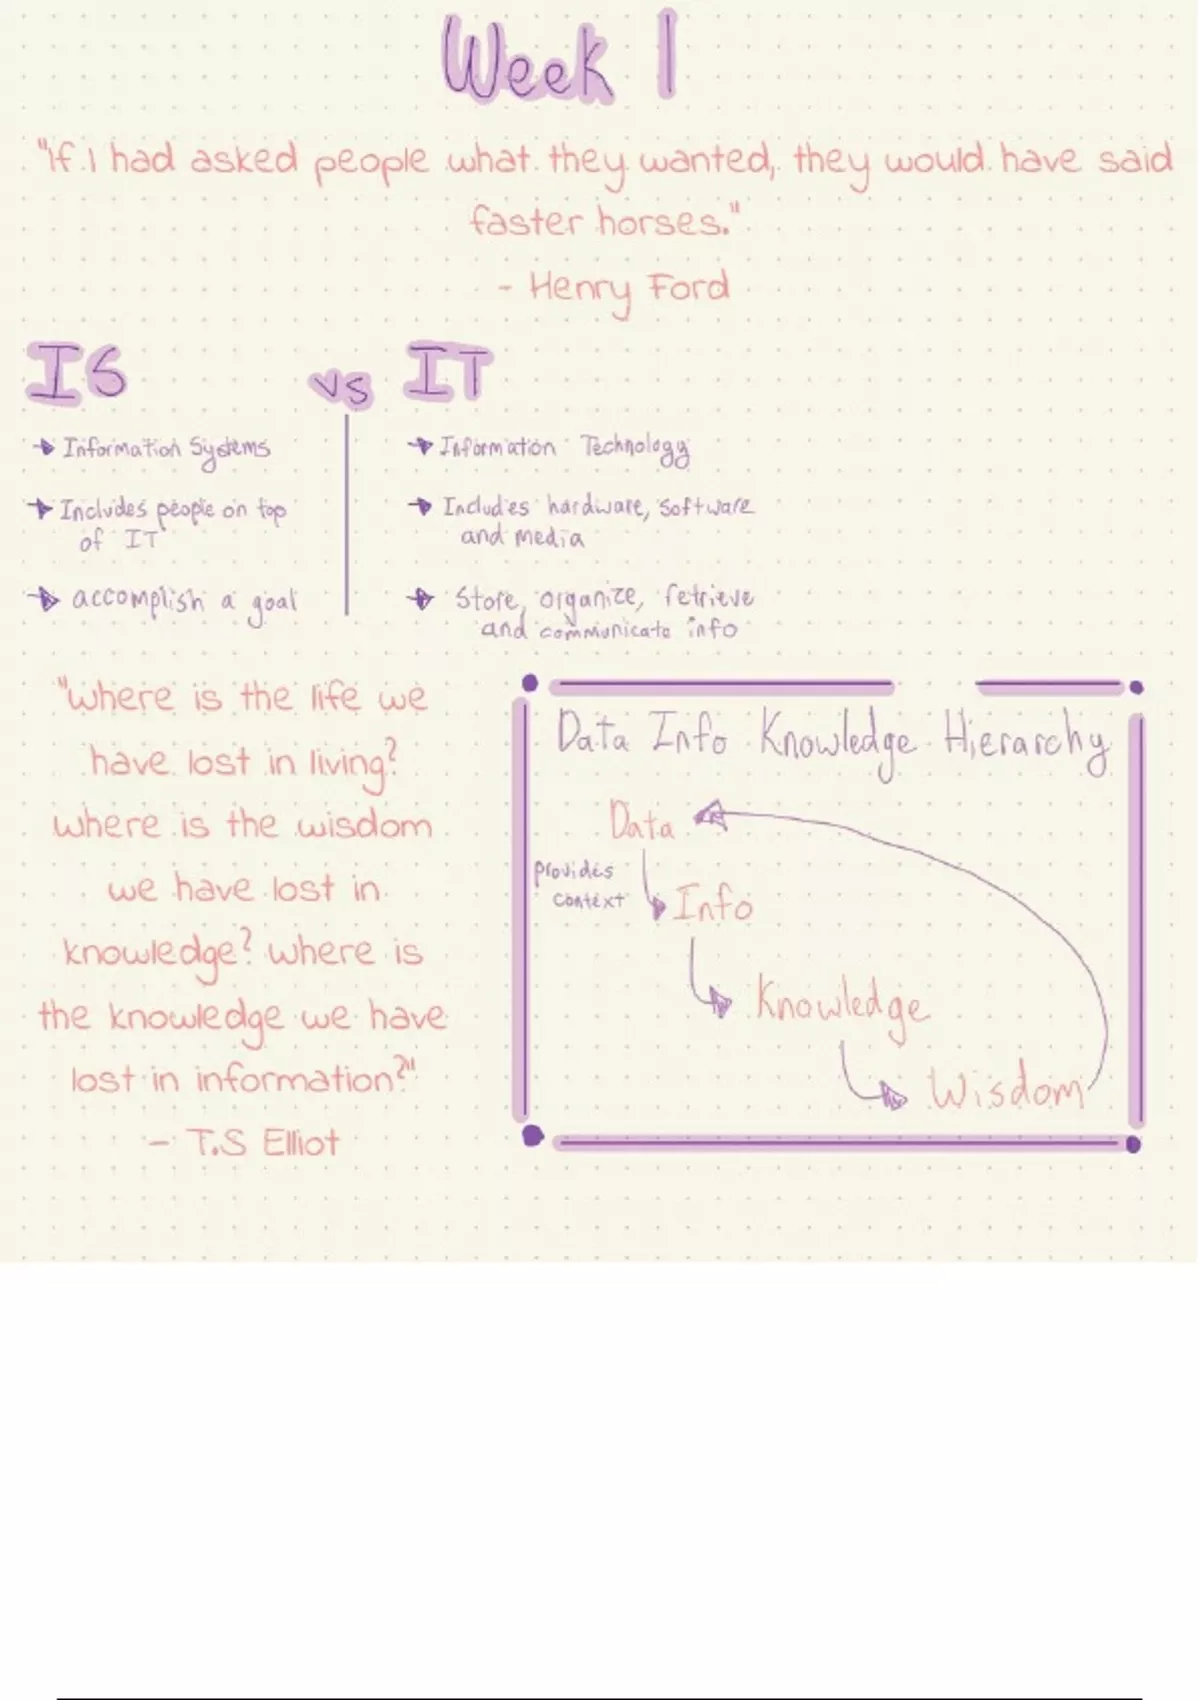 Week 1
"if I had asked people what they wanted, they would have said
faster horses."
- Henry Ford
IS vs IT
→ Information Systems
→ Includes people on top
of IT
→ accomplish a goal
→ Information Technology
→ Includes hardware, software
and media
→ Store, organize, retrieve
and communicate info
"where is the life we
have lost in living?
where is the wisdom
we have lost in
knowledge? where is
the knowledge we have
lost in information?"
- T.S Elliot
Data Info Knowledge Hierarchy
Data
provides
context
Info
Knowledge
Wisdom